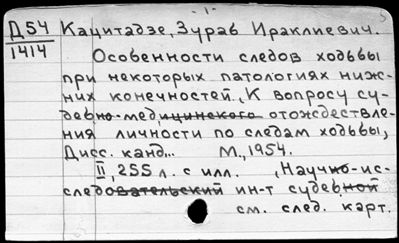 - 1 -
5
Д54 Кацитадзе, Зураб Ираклиевич.
1414
Особенности следов ходьбы
при некоторых патологиях ниж-
них конечностей, К вопросу су-
дебно-медицинского отождествле-
ния личности по следам ходьбы,
Дисс. канд... М., 1954.
II, 255 л. с илл. , Научно-ис-
следовательский ин-т судебной
см. след. карт.